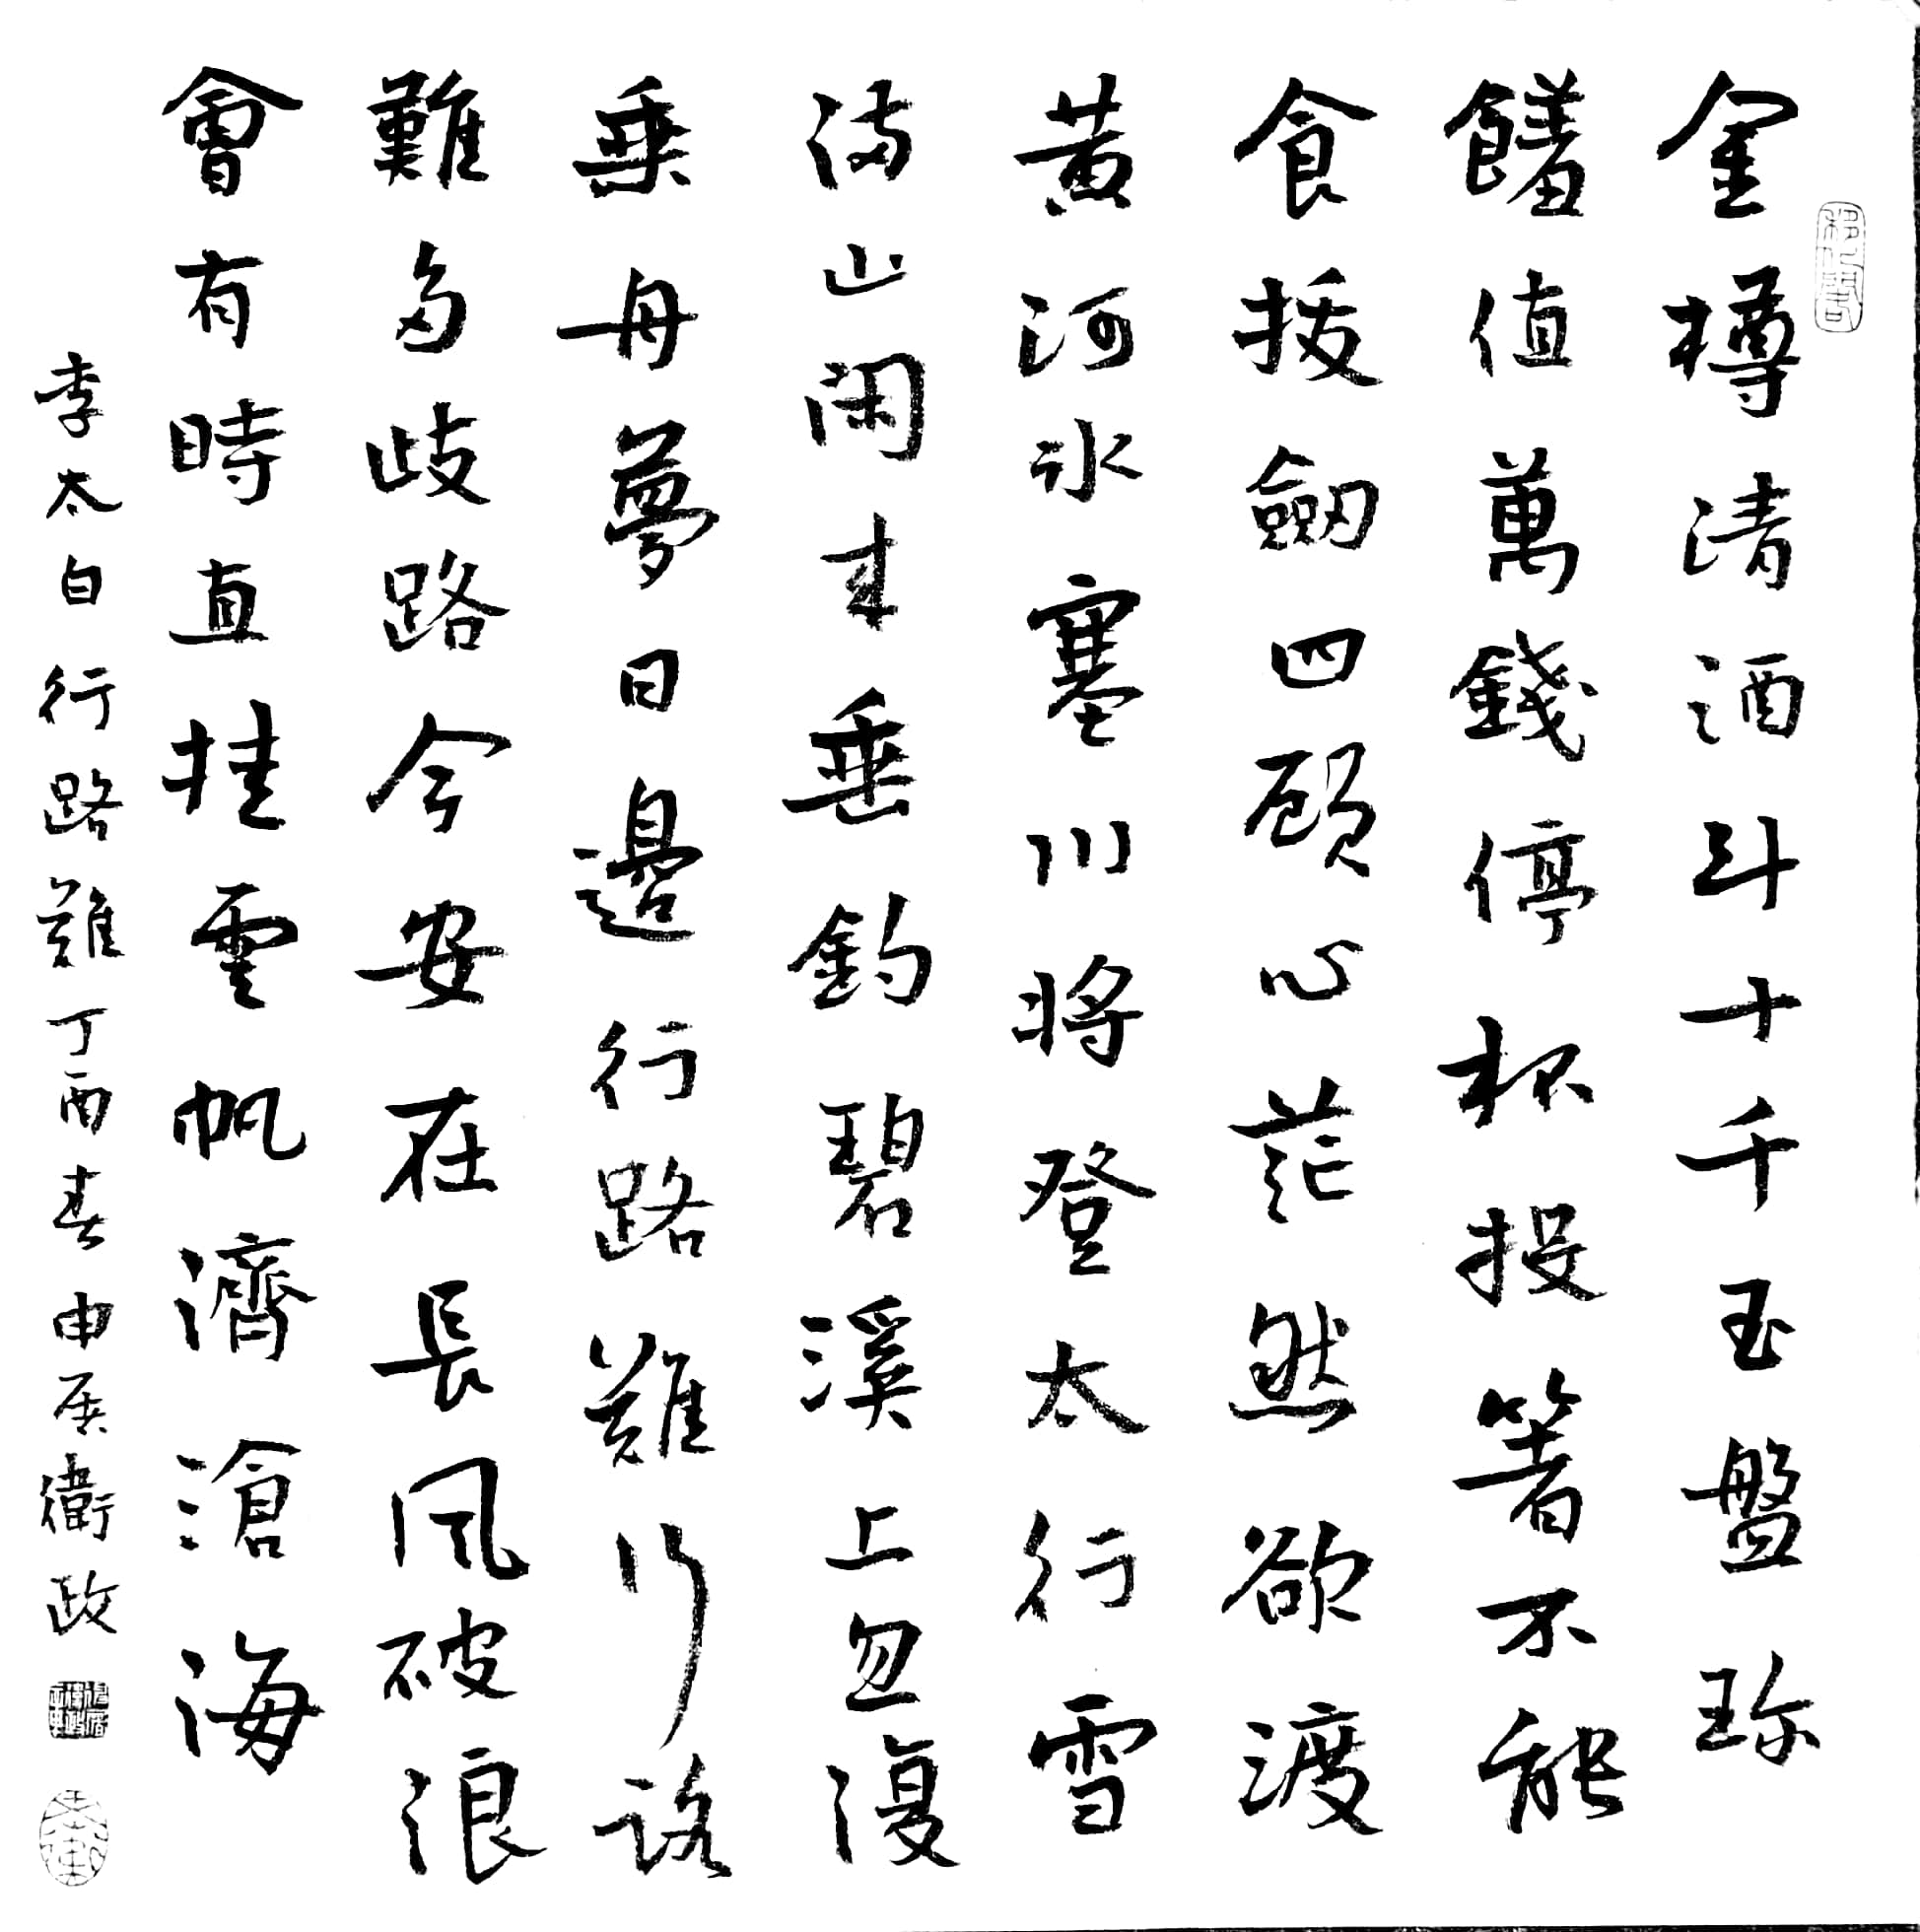 金樽清酒斗十千玉盤珎
饈值萬錢停杯投箸不能
食拔劒四顧心茫然欲渡
黃河冰塞川將登太行雪
滿山閑來垂釣碧溪上忽復
乘舟夢日邊行路難行路
難多歧路今安在長風破浪
會有時直挂雲帆濟滄海
李太白行路難丁酉春申衛政